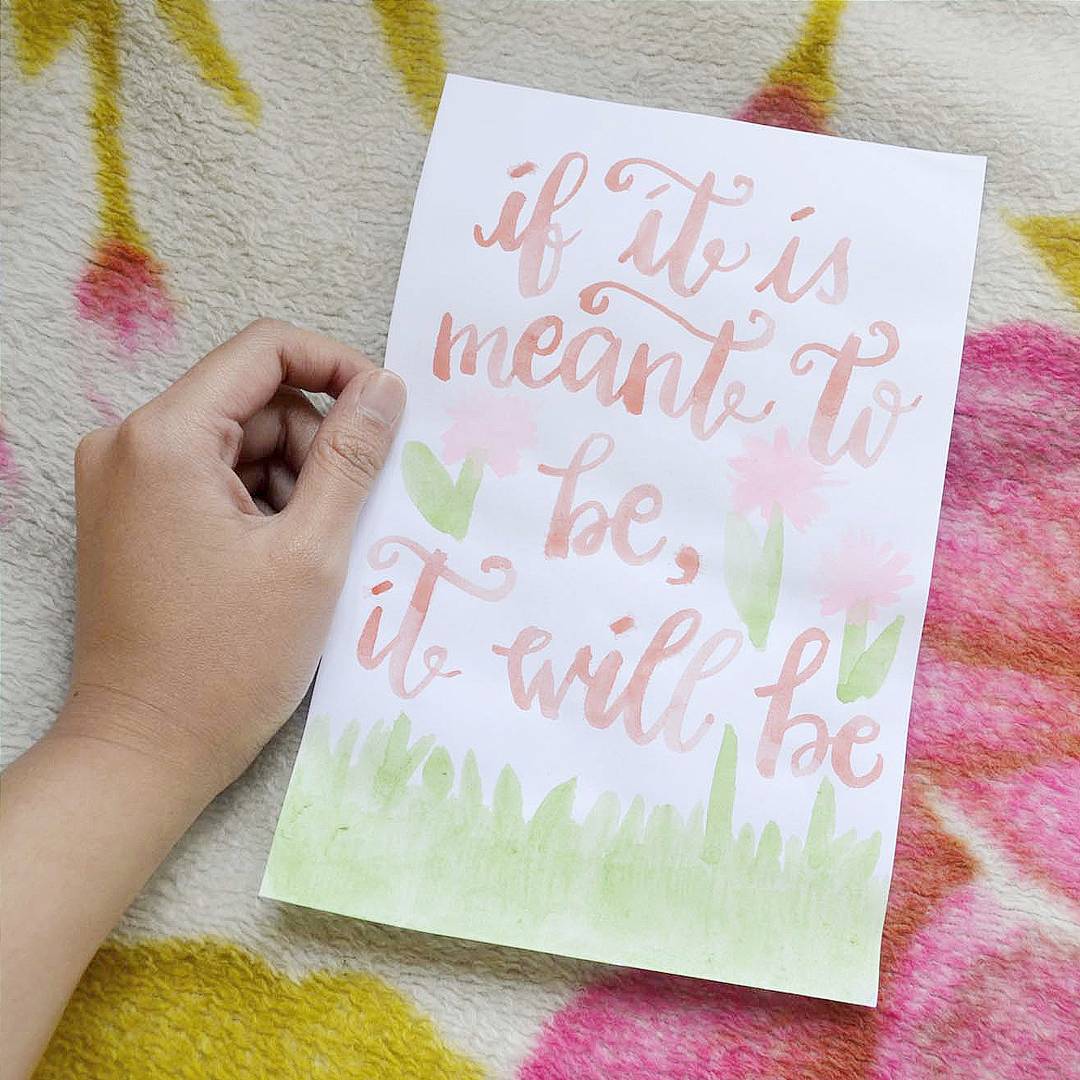 if it is
meant to
be,
it will be